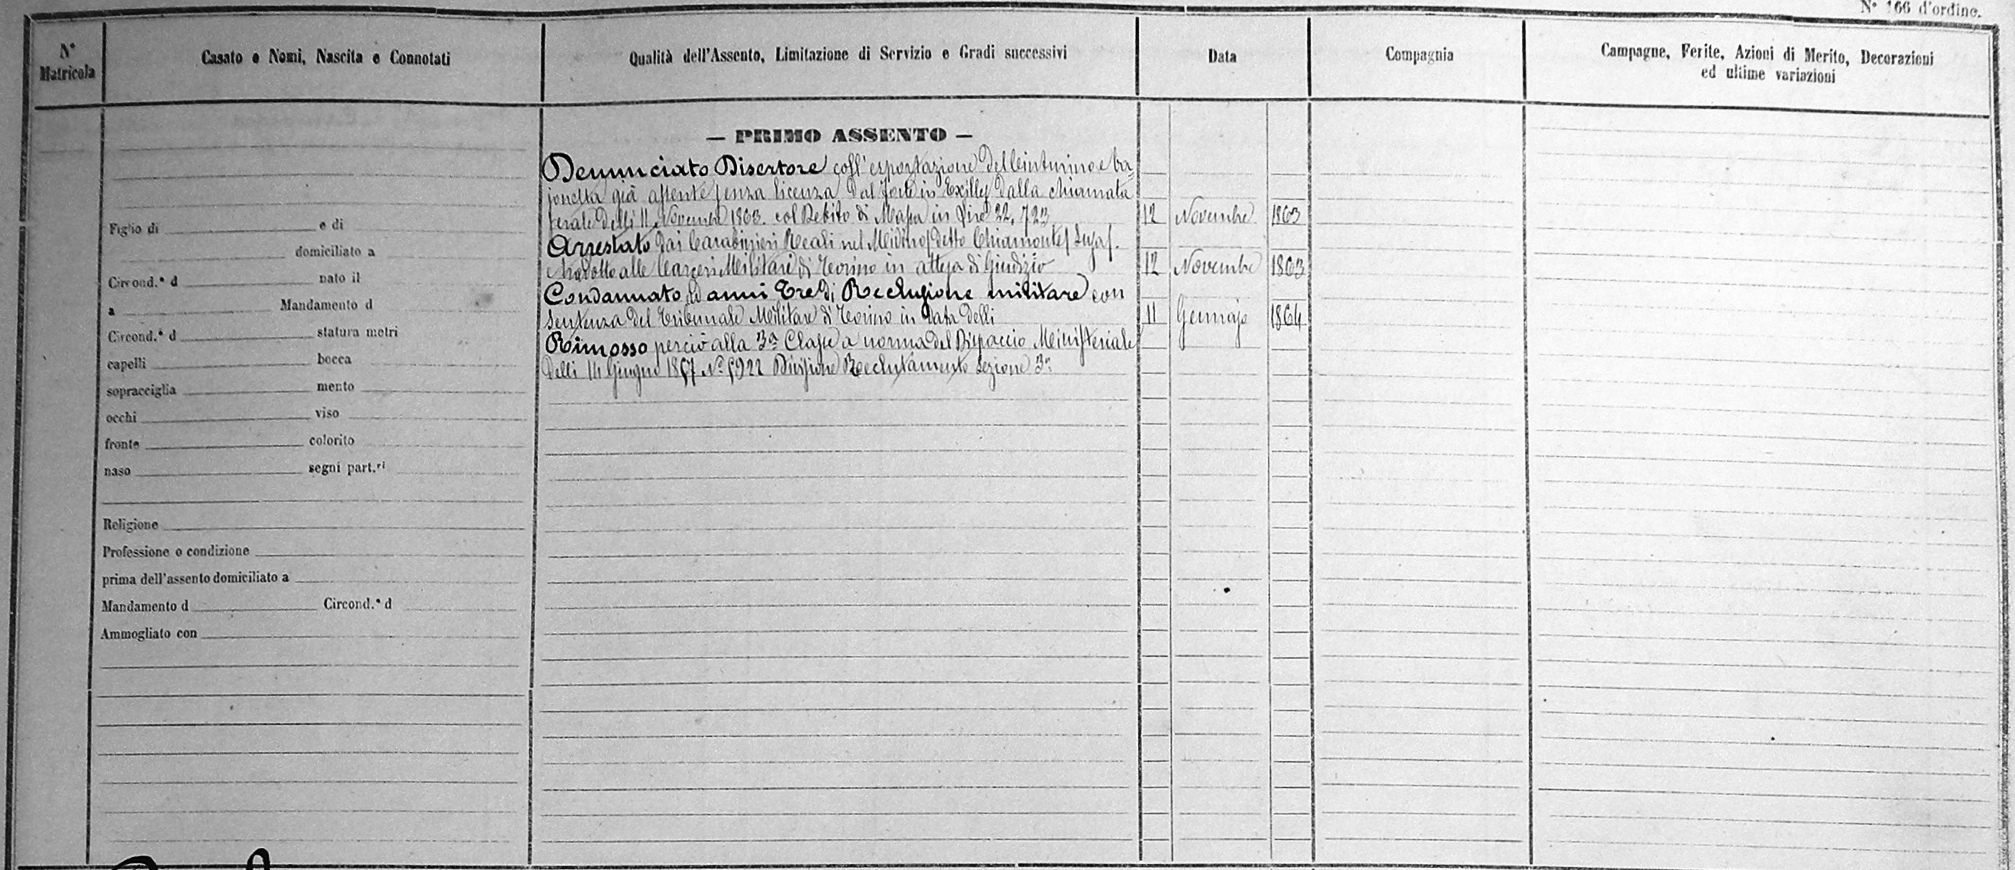 N° 166 d'ordine.
N° Matricola
Casato e Nomi, Nascita e Connotati
Qualità dell'Assento, Limitazione di Servizio e Gradi successivi
Data
Compagnia
Campagne, Ferite, Azioni di Merito, Decorazioni
ed ultime variazioni
— PRIMO ASSENTO —
Denunciato Disertore coll'esportazione del cinturino e ba-
jonetta già assente senza licenza dal forte in Exilles dalla chiamata
serale delli 11 Novembre 1863 col Debito di Massa in Lire 22,723 12 Novembre 1863
Arrestato dai Carabinieri Reali nel detto Chiamonte Susa
tradotto alle Carceri Militari di Torino in attesa di Giudizio 12 Novembre 1863
Condannato ad anni Tre di Reclusione militare con
Sentenza del Tribunale Militare di Torino in data delli 11 Gennajo 1864
Rimosso perciò alla 3a Classe a norma del Dispaccio Ministeriale
delli 14 Giugno 1857 N° 5922 Divisione Reclutamento Sezione 3a
Figlio di e di
domiciliato a
Circond.° d nato il
a Mandamento d
Circond.° d statura metri
capelli bocca
sopracciglia mento
occhi viso
fronte colorito
naso segni part.ri
Religione
Professione o condizione
prima dell'assento domiciliato a
Mandamento d Circond.° d
Ammogliato con